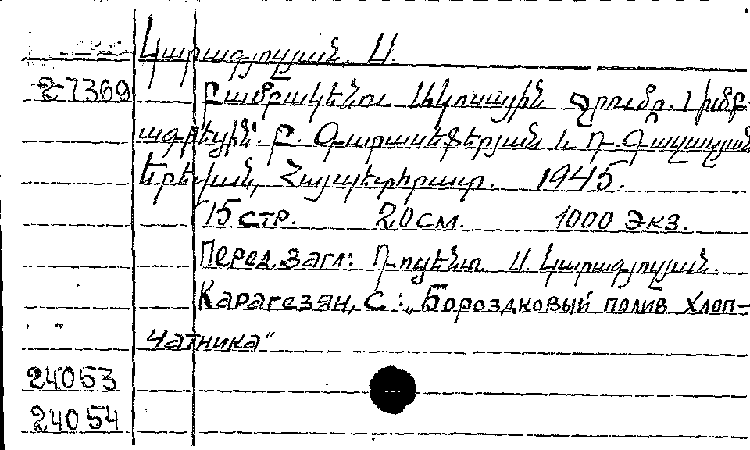 Կարագյոզյան, Ս.
27369 Բամբակենու ակոսային ջրումը. Խմբ
ագրեցին՝ Բ. Գարասեֆերյան և Դ. Գալստյան
Երևան, Հայպետհրատ. 1945.
15 стр. 20 см. 1000 экз.
Перед загл: Դոցենտ Ս Կարագյոզյան.
Карагезян, С.: „Бороздковый полив хлоп-
чатника"
24053
24054